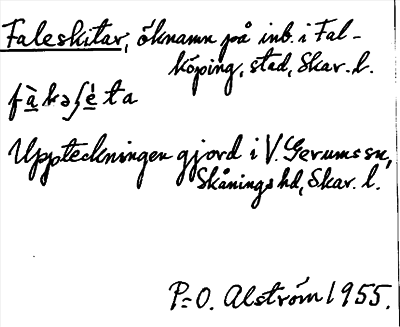 Faleskitar, öknamn på inb. i Fal-
köping, stad, Skar. l.
Uppteckningen gjord i V. Gerums sn,
Skånings hd, Skar. l.
P-O. Alström 1955.